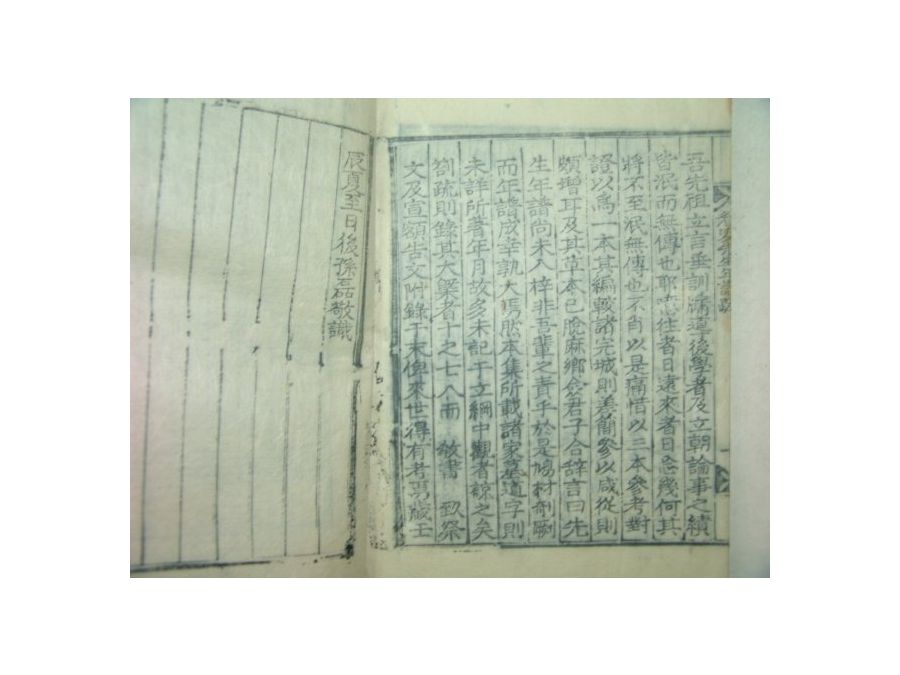 吾先祖立言垂訓牖導後學者及立朝論事之績
皆泯而無傳也耶噫往者日遠來者日急幾何其
將不至泯無傳也不肖以是痛惜以三本參考對
證以爲一本其編較諸完城則差簡參以咸從則
頗增耳及其草本已脫麻鄉僉君子合辞言曰先
生年譜尚未入梓非吾輩之責乎於是鳩材剞劂
而年譜成幸孰大焉然本集所載諸家墓道字則
未詳所著年月故多未記于立綱中觀者諒之矣
劄疏則錄其大槩者十之七八而 敎書 致祭
文及宣額告文附錄于末俾來世得有考焉歲壬
辰夏至日後孫磊敬識